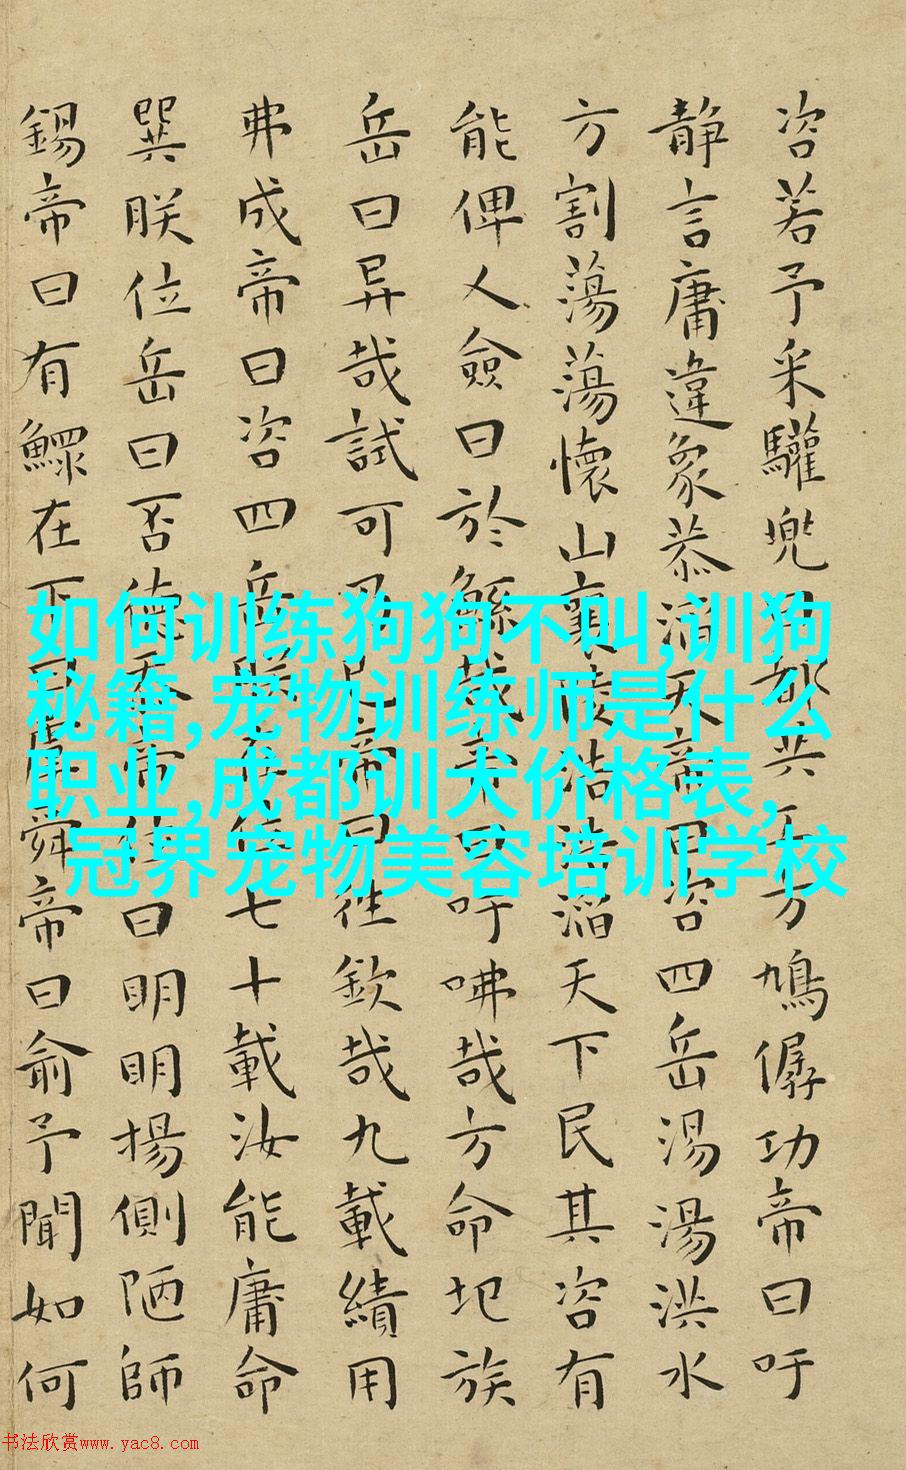 咨若予采驩兜曰都共工方鳩僝功帝曰吁
静言庸違象恭滔天帝曰咨四岳湯湯洪水
方割蕩蕩懷山襄陵浩浩滔天下民其咨有
能俾乂僉曰於鯀哉帝曰吁咈哉方命圮族
岳曰异哉試可乃已帝曰往欽哉九載績用
弗成帝曰咨四岳朕在位七十載汝能庸命
巽朕位岳曰否德忝帝位曰明明揚側陋師
錫帝曰有鰥在下曰虞舜帝曰俞予聞如何
如何训练狗狗不叫,训狗
秘籍,宠物训练师是什么
职业,成都训犬价格表,
冠界宠物美容培训学校
书法欣赏www.yac8.com